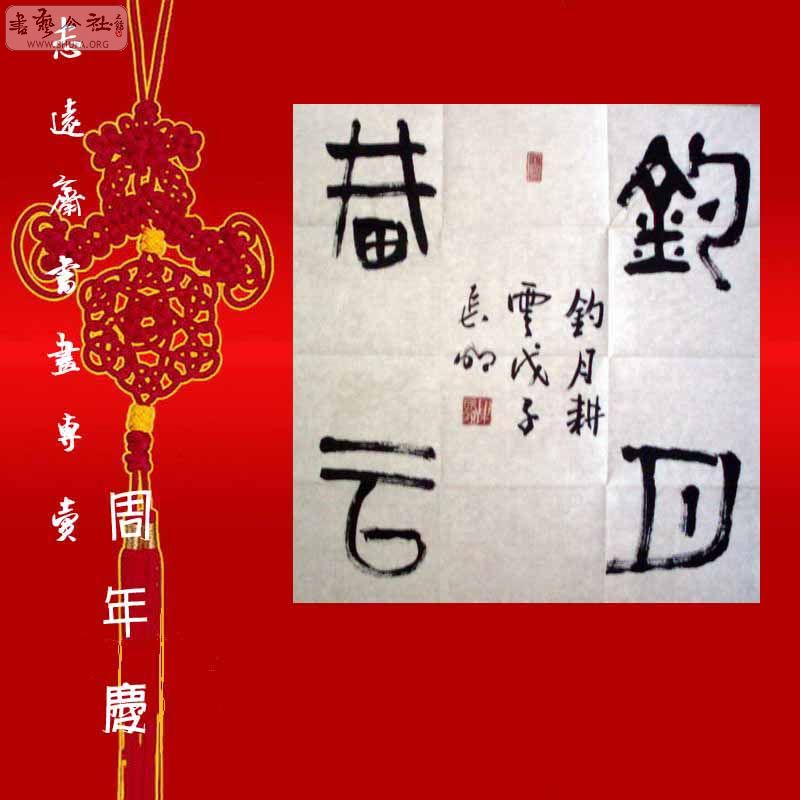 書藝公社
WWW.SHUFA.ORG
志遠齋書畫專賣
周年慶
釣月
耕云
釣月耕
雲戊子
長明